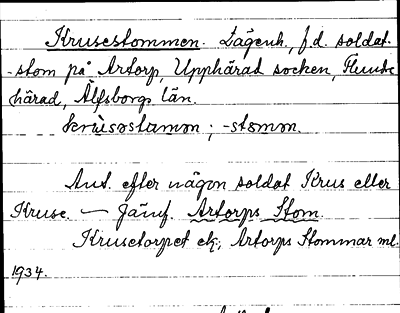 Krusestommen. Lägenh., f.d. soldat-
-stom på Artorp, Upphärad socken, Flundre
härad, Älfsborgs län.
krùsəstamən; -stomən.
Ant. efter någon soldat Krus eller
Kruse. — Jämf. Artorps Stom.
Krusetorpet ek.; Artorps Stommar ml.
1934.